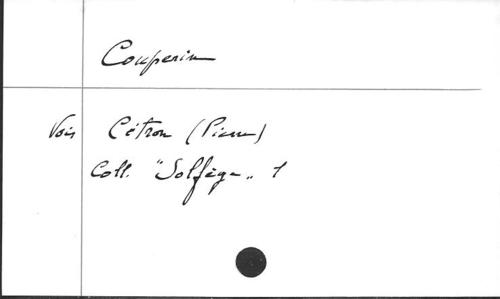 Couperin
Voir Citron (Pierre)
Coll. "Solfège" 1